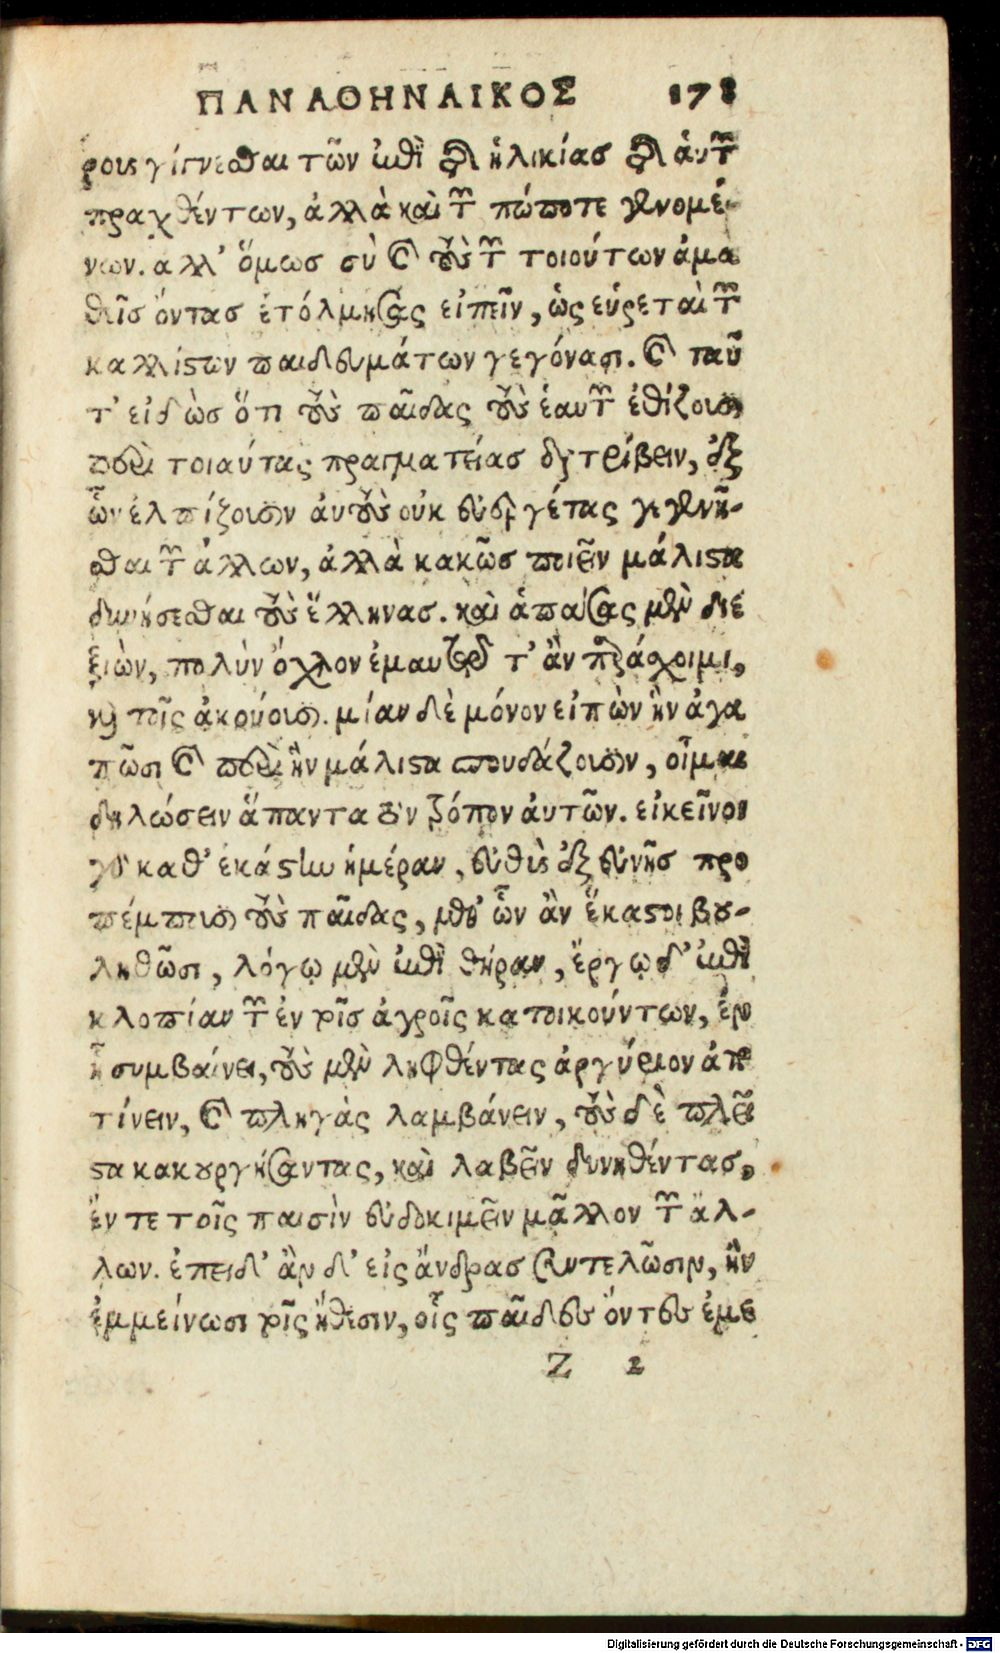 ΠΑΝΑΘΗΝΑΙΚΟΣ 178
ρους γίγνεσθαι τῶν ἐπὶ τῆς ἡλικίας τῆς αὑτῶν
πραχθέντων, ἀλλὰ καὶ τῶν πώποτε γενομέ-
νων. ἀλλ' ὅμως σὺ καὶ τοὺς τῶν τοιούτων ἀμα
θεῖς ὄντας ἐτόλμησας εἰπεῖν, ὡς εὑρεταὶ τῶν
καλλίστων παιδευμάτων γεγόνασι. καὶ ταῦ
τ' εἰδὼς ὅτι τοὺς παῖδας τοὺς ἑαυτῶν ἐθίζουσι
περὶ τοιαύτας πραγματείας διατρίβειν, ἐξ
ὧν ἐλπίζουσιν αὐτοὺς οὐκ εὐεργέτας γεγενῆ-
σθαι τῶν ἄλλων, ἀλλὰ κακῶς ποιεῖν μάλιστα
δυνήσεσθαι τοὺς ἕλληνας. καὶ ἁπάσας μὲν διε
ξιὼν, πολὺν ὄχλον ἐμαυτῷ τ' ἂν παράσχοιμι,
καὶ τοῖς ἀκούουσι. μίαν δὲ μόνον εἰπὼν ἣν ἀγα
πῶσι καὶ περὶ ἣν μάλιστα σπουδάζουσιν, οἶμαι
δηλώσειν ἅπαντα τὸν τρόπον αὐτῶν. εἰκεῖνοι
γὰρ καθ' ἑκάστην ἡμέραν, εὐθὺς ἐξ εὐνῆς προ
πέμπουσι τοὺς παῖδας, μεθ' ὧν ἂν ἕκαστοι βου-
ληθῶσι, λόγῳ μὲν ἐπὶ θήραν, ἔργῳ δ' ἐπὶ
κλοπίαν τῶν ἐν τοῖς ἀγροῖς κατοικούντων, ἐν
ᾗ συμβαίνει, τοὺς μὲν ληφθέντας ἀργύριον ἀπο
τίνειν, καὶ πληγὰς λαμβάνειν, τοὺς δὲ πλεῖ
στα κακουργήσαντας, καὶ λαβεῖν δυνηθέντας,
ἔν τε τοῖς παισὶν εὐδοκιμεῖν μᾶλλον τῶν ἄλ-
λων. ἐπειδ' ἂν δ' εἰς ἄνδρας συντελῶσιν, ἢν
ἐμμείνωσι τοῖς ἤθεσιν, οἷς παῖδες ὄντες ἐμε
Z 2
Digitalisierung gefördert durch die Deutsche Forschungsgemeinschaft - DFG